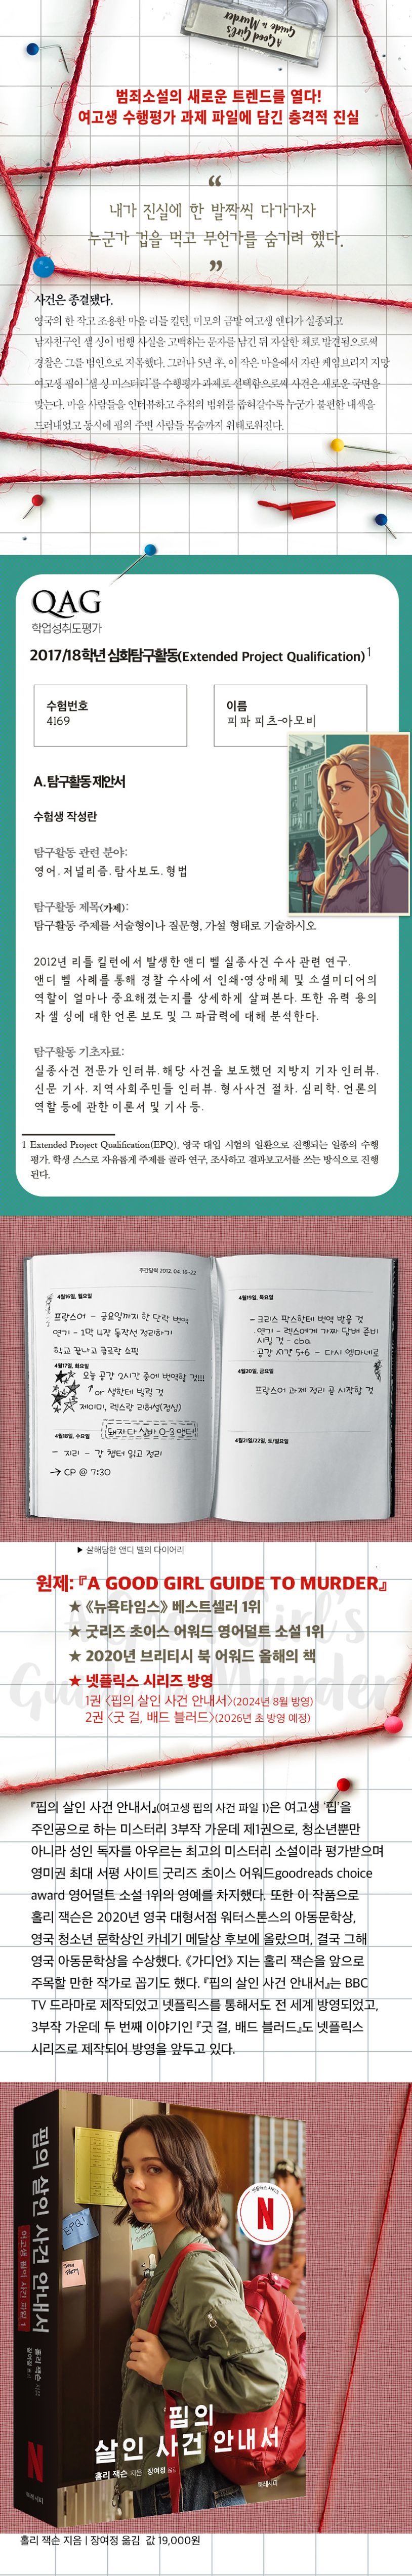 A Good Girl's
Guide to Murder
범죄소설의 새로운 트렌드를 열다!
여고생 수행평가 과제 파일에 담긴 충격적 진실
“
내가 진실에 한 발짝씩 다가가자
누군가 겁을 먹고 무언가를 숨기려 했다.
”
사건은 종결됐다.
영국의 한 작고 조용한 마을 리틀 킬턴, 미모의 금발 여고생 앤디가 실종되고
남자친구인 샐 싱이 범행 사실을 고백하는 문자를 남긴 뒤 자살한 채로 발견됨으로써
경찰은 그를 범인으로 지목했다. 그러나 5년 후, 이 작은 마을에서 자란 케임브리지 지망
여고생 핍이 ‘샐 싱 미스터리’를 수행평가 과제로 선택함으로써 사건은 새로운 국면을
맞는다. 마을 사람들을 인터뷰하고 추적의 범위를 좁혀갈수록 누군가 불편한 내색을
드러내었고 동시에 핍의 주변 사람들 목숨까지 위태로워진다.
QAG
학업성취도평가
2017/18학년 심화탐구활동(Extended Project Qualification)1
수험번호
4169
이름
피파 피츠-아모비
A. 탐구활동 제안서
수험생 작성란
탐구활동 관련 분야:
영어, 저널리즘, 탐사보도, 형법
탐구활동 제목(가제):
탐구활동 주제를 서술형이나 질문형, 가설 형태로 기술하시오
2012년 리틀 킬턴에서 발생한 앤디 벨 실종사건 수사 관련 연구.
앤디 벨 사례를 통해 경찰 수사에서 인쇄·영상매체 및 소셜미디어의
역할이 얼마나 중요해졌는지를 상세하게 살펴본다. 또한 유력 용의
자 샐 싱에 대한 언론 보도 및 그 파급력에 대해 분석한다.
탐구활동 기초자료:
실종사건 전문가 인터뷰, 해당 사건을 보도했던 지방지 기자 인터뷰,
신문 기사, 지역사회주민들 인터뷰. 형사사건 절차, 심리학, 언론의
역할 등에 관한 이론서 및 기사 등.
1 Extended Project Qualification(EPQ). 영국 대입 시험의 일환으로 진행되는 일종의 수행
평가. 학생 스스로 자유롭게 주제를 골라 연구, 조사하고 결과보고서를 쓰는 방식으로 진행
된다.
주간달력 2012. 04. 16~22
4월16일, 월요일
프랑스어 - 금요일까지 한 단락 번역
연기 - 1막 4장 동작선 정리하기
학교 끝나고 클로랑 쇼핑
4월17일, 화요일
오늘 공강 2시간 중에 번역할 것!!!
or 생한테 빌릴 것
제이미, 렉스랑 리허설(점심)
4월18일, 수요일
- 지리 - 강 챕터 읽고 정리
→ CP @ 7:30
4월19일, 목요일
- 크리스 팍스한테 번역 받을 것
- 연기 - 렉스에게 가짜 담배 준비
시킬 것 - cba
- 공강 시간 5+6 - 다시 엠마네로
4월20일, 금요일
프랑스어 과제 정리 곧 시작할 것
4월21일/22일, 토/일요일
▶ 살해당한 앤디 벨의 다이어리
A Good Girl's
Guide to Murder
원제: 『A GOOD GIRL GUIDE TO MURDER』
★ 《뉴욕타임스》 베스트셀러 1위
★ 굿리즈 초이스 어워드 영어덜트 소설 1위
★ 2020년 브리티시 북 어워드 올해의 책
★ 넷플릭스 시리즈 방영
1권 〈핍의 살인 사건 안내서〉(2024년 8월 방영)
2권 〈굿 걸, 배드 블러드〉(2026년 초 방영 예정)
『핍의 살인 사건 안내서』(여고생 핍의 사건 파일 1)은 여고생 ‘핍’을
주인공으로 하는 미스터리 3부작 가운데 제1권으로, 청소년뿐만
아니라 성인 독자를 아우르는 최고의 미스터리 소설이라 평가받으며
영미권 최대 서평 사이트 굿리즈 초이스 어워드goodreads choice
award 영어덜트 소설 1위의 영예를 차지했다. 또한 이 작품으로
홀리 잭슨은 2020년 영국 대형서점 워터스톤스의 아동문학상,
영국 청소년 문학상인 카네기 메달상 후보에 올랐으며, 결국 그해
영국 아동문학상을 수상했다. 《가디언》 지는 홀리 잭슨을 앞으로
주목할 만한 작가로 꼽기도 했다. 『핍의 살인 사건 안내서』는 BBC
TV 드라마로 제작되었고 넷플릭스를 통해서도 전 세계 방영되었고,
3부작 가운데 두 번째 이야기인 『굿 걸, 배드 블러드』도 넷플릭스
시리즈로 제작되어 방영을 앞두고 있다.
핍의 살인 사건 안내서
여고생 핍의 사건 파일 1
홀리 잭슨 지음
장여정 옮김
N
북레시피
넷플릭스 시리즈
N
EPQ!
핍의
살인 사건 안내서
홀리 잭슨 지음 장여정 옮김
북레시피
홀리 잭슨 지음 | 장여정 옮김 값 19,000원